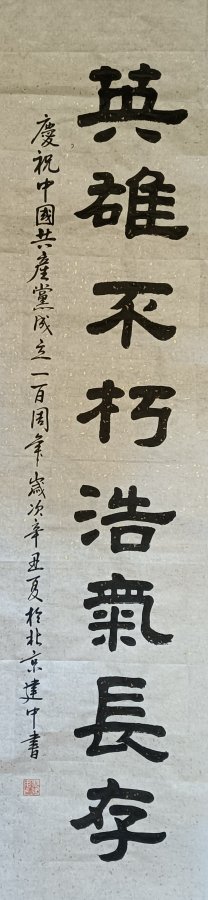 英雄不朽浩氣長存
慶祝中國共產黨成立一百周年歲次辛丑夏於北京建中書